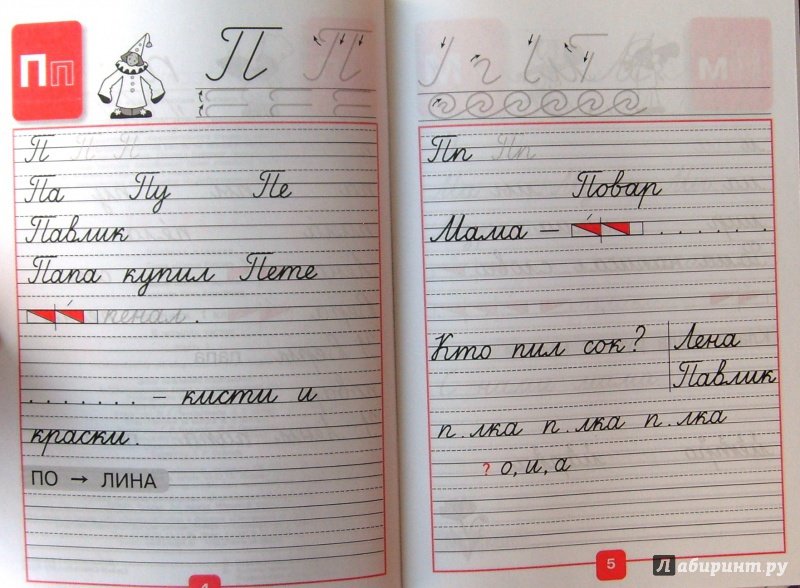 Пп
П П
П П П
Па Пу Пе
Павлик
Папа купил Пете
пенал .
. . . . . . . – кисти и
краски .
ПО → ЛИНА
Пп Пп
Повар
Мама – . . . . . . .
Кто пил сок? Лена
Павлик
п . лка п . лка п . лка
? о, и, а
5
Лабиринт.ру